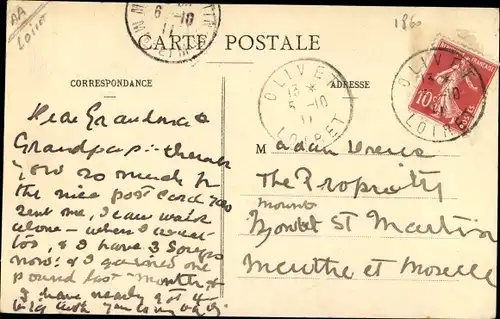 AA
Loire
6-10
11
1860
CARTE POSTALE
CORRESPONDANCE
ADRESSE
OLIVET
13 *
5-10
11
LOIRET
OLIVET
10
LOIRET
10c
POSTES
Dear Grandma &
Grandpap: thank
you so much for
the nice post card you
sent me, I can walk
alone – when I
too, & I have 3
now: & I gained one
pound last month &
I have nearly got 4
big
Madam
The Propriety
Mount
St Martin
Meurthe et Moselle